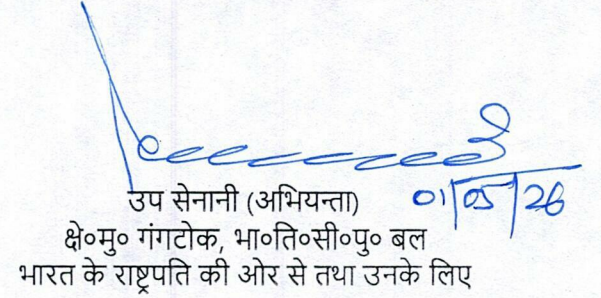 01/05/26
उप सेनानी (अभियन्ता)
क्षे०मु० गंगटोक, भा०ति०सी०पु० बल
भारत के राष्ट्रपति की ओर से तथा उनके लिए